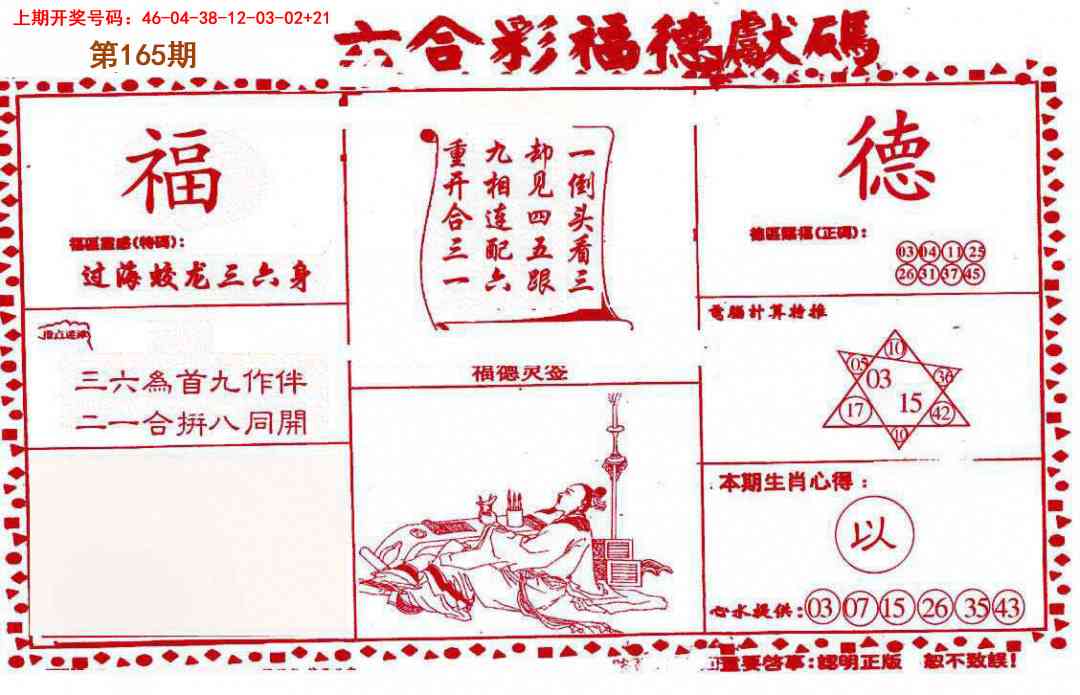 上期开奖号码：46-04-38-12-03-02+21
第165期
六合彩福德獻碼
福
福區靈感(特碼)：
过海蛟龙三六身
三六為首九作伴
二一合拼八同開
一倒头看三
却见四五跟
九相连配六
重开合三一
福德灵签
德
德區賜福(正碼)：
03 04 11 25
26 31 37 45
電腦計算特推
10
05 03 36
17 15 42
10
本期生肖心得：
以
心水提供：03 07 15 26 35 43
重要啓事：認明正版 恕不致誤！